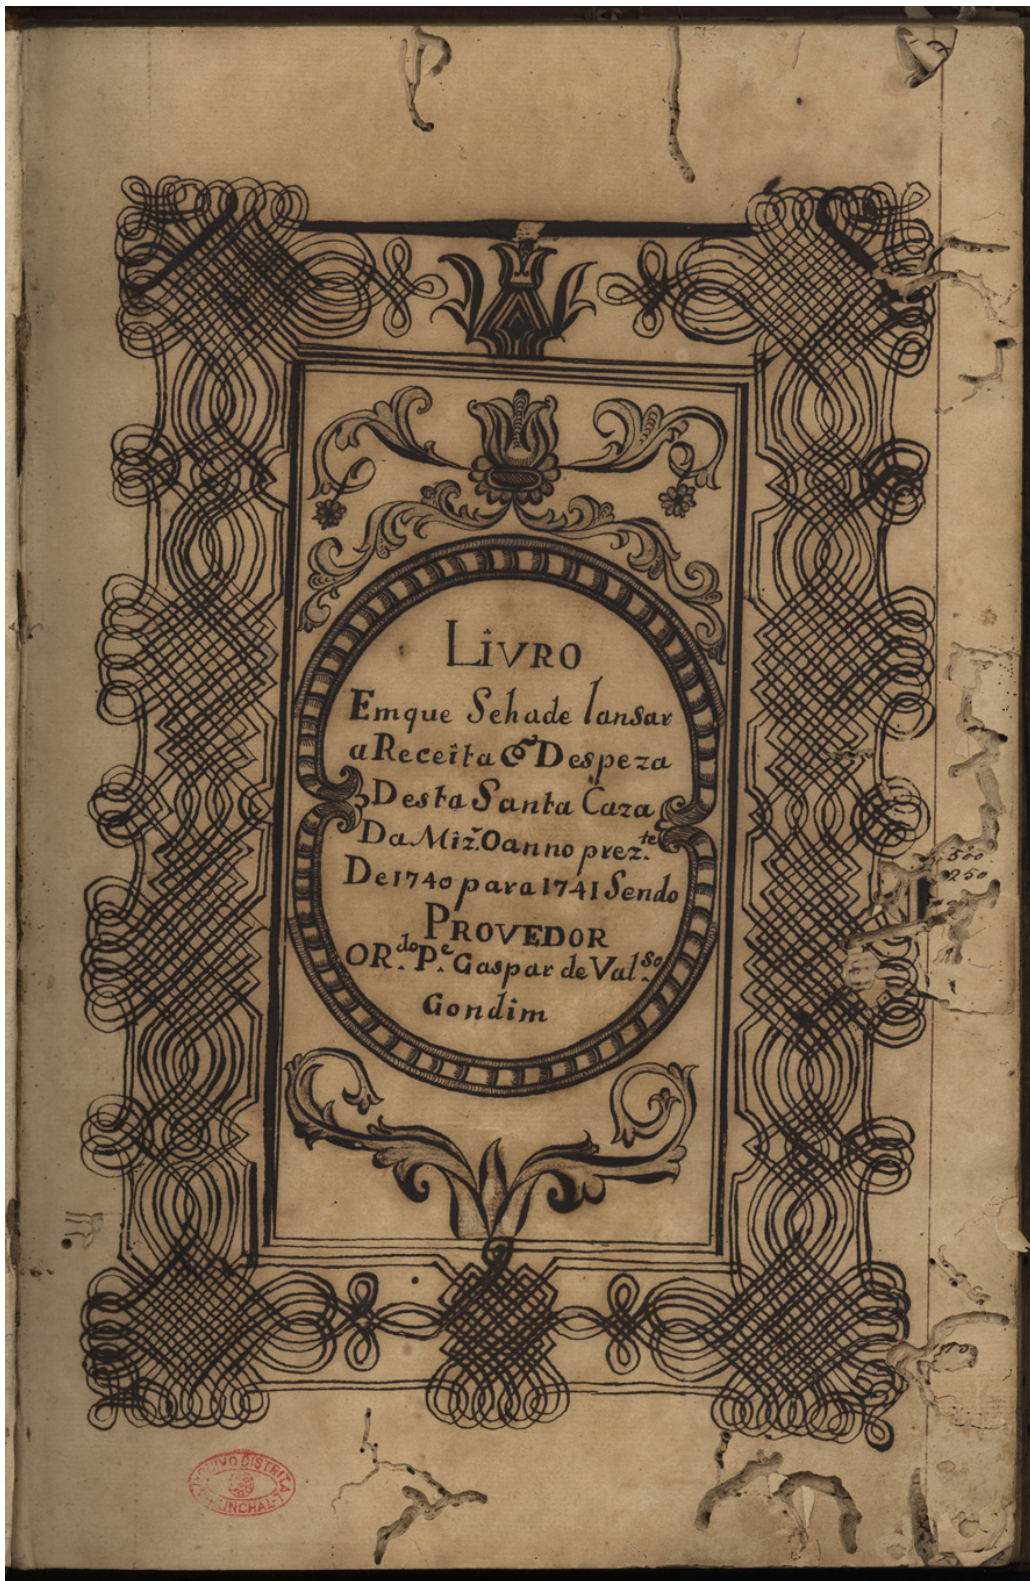 LIVRO
Emque Sehade lansar
a Receita & Despeza
Desta Santa Caza
Da Miz.ª O anno prez.te
De 1740 para 1741 Sendo
PROVEDOR
O R.do P.e Gaspar de Val.so
Gondim
500
250
ARQUIVO DISTRITAL
FUNCHAL